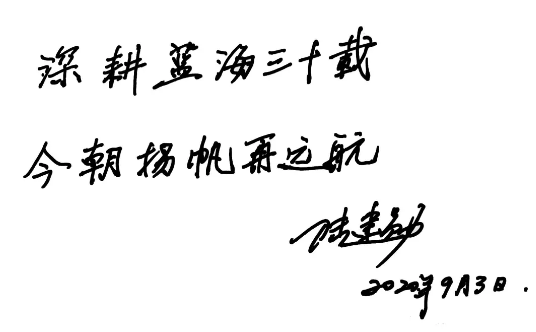 深耕蓝海三十载
今朝扬帆再远航
陆建勋
2020年9月3日.